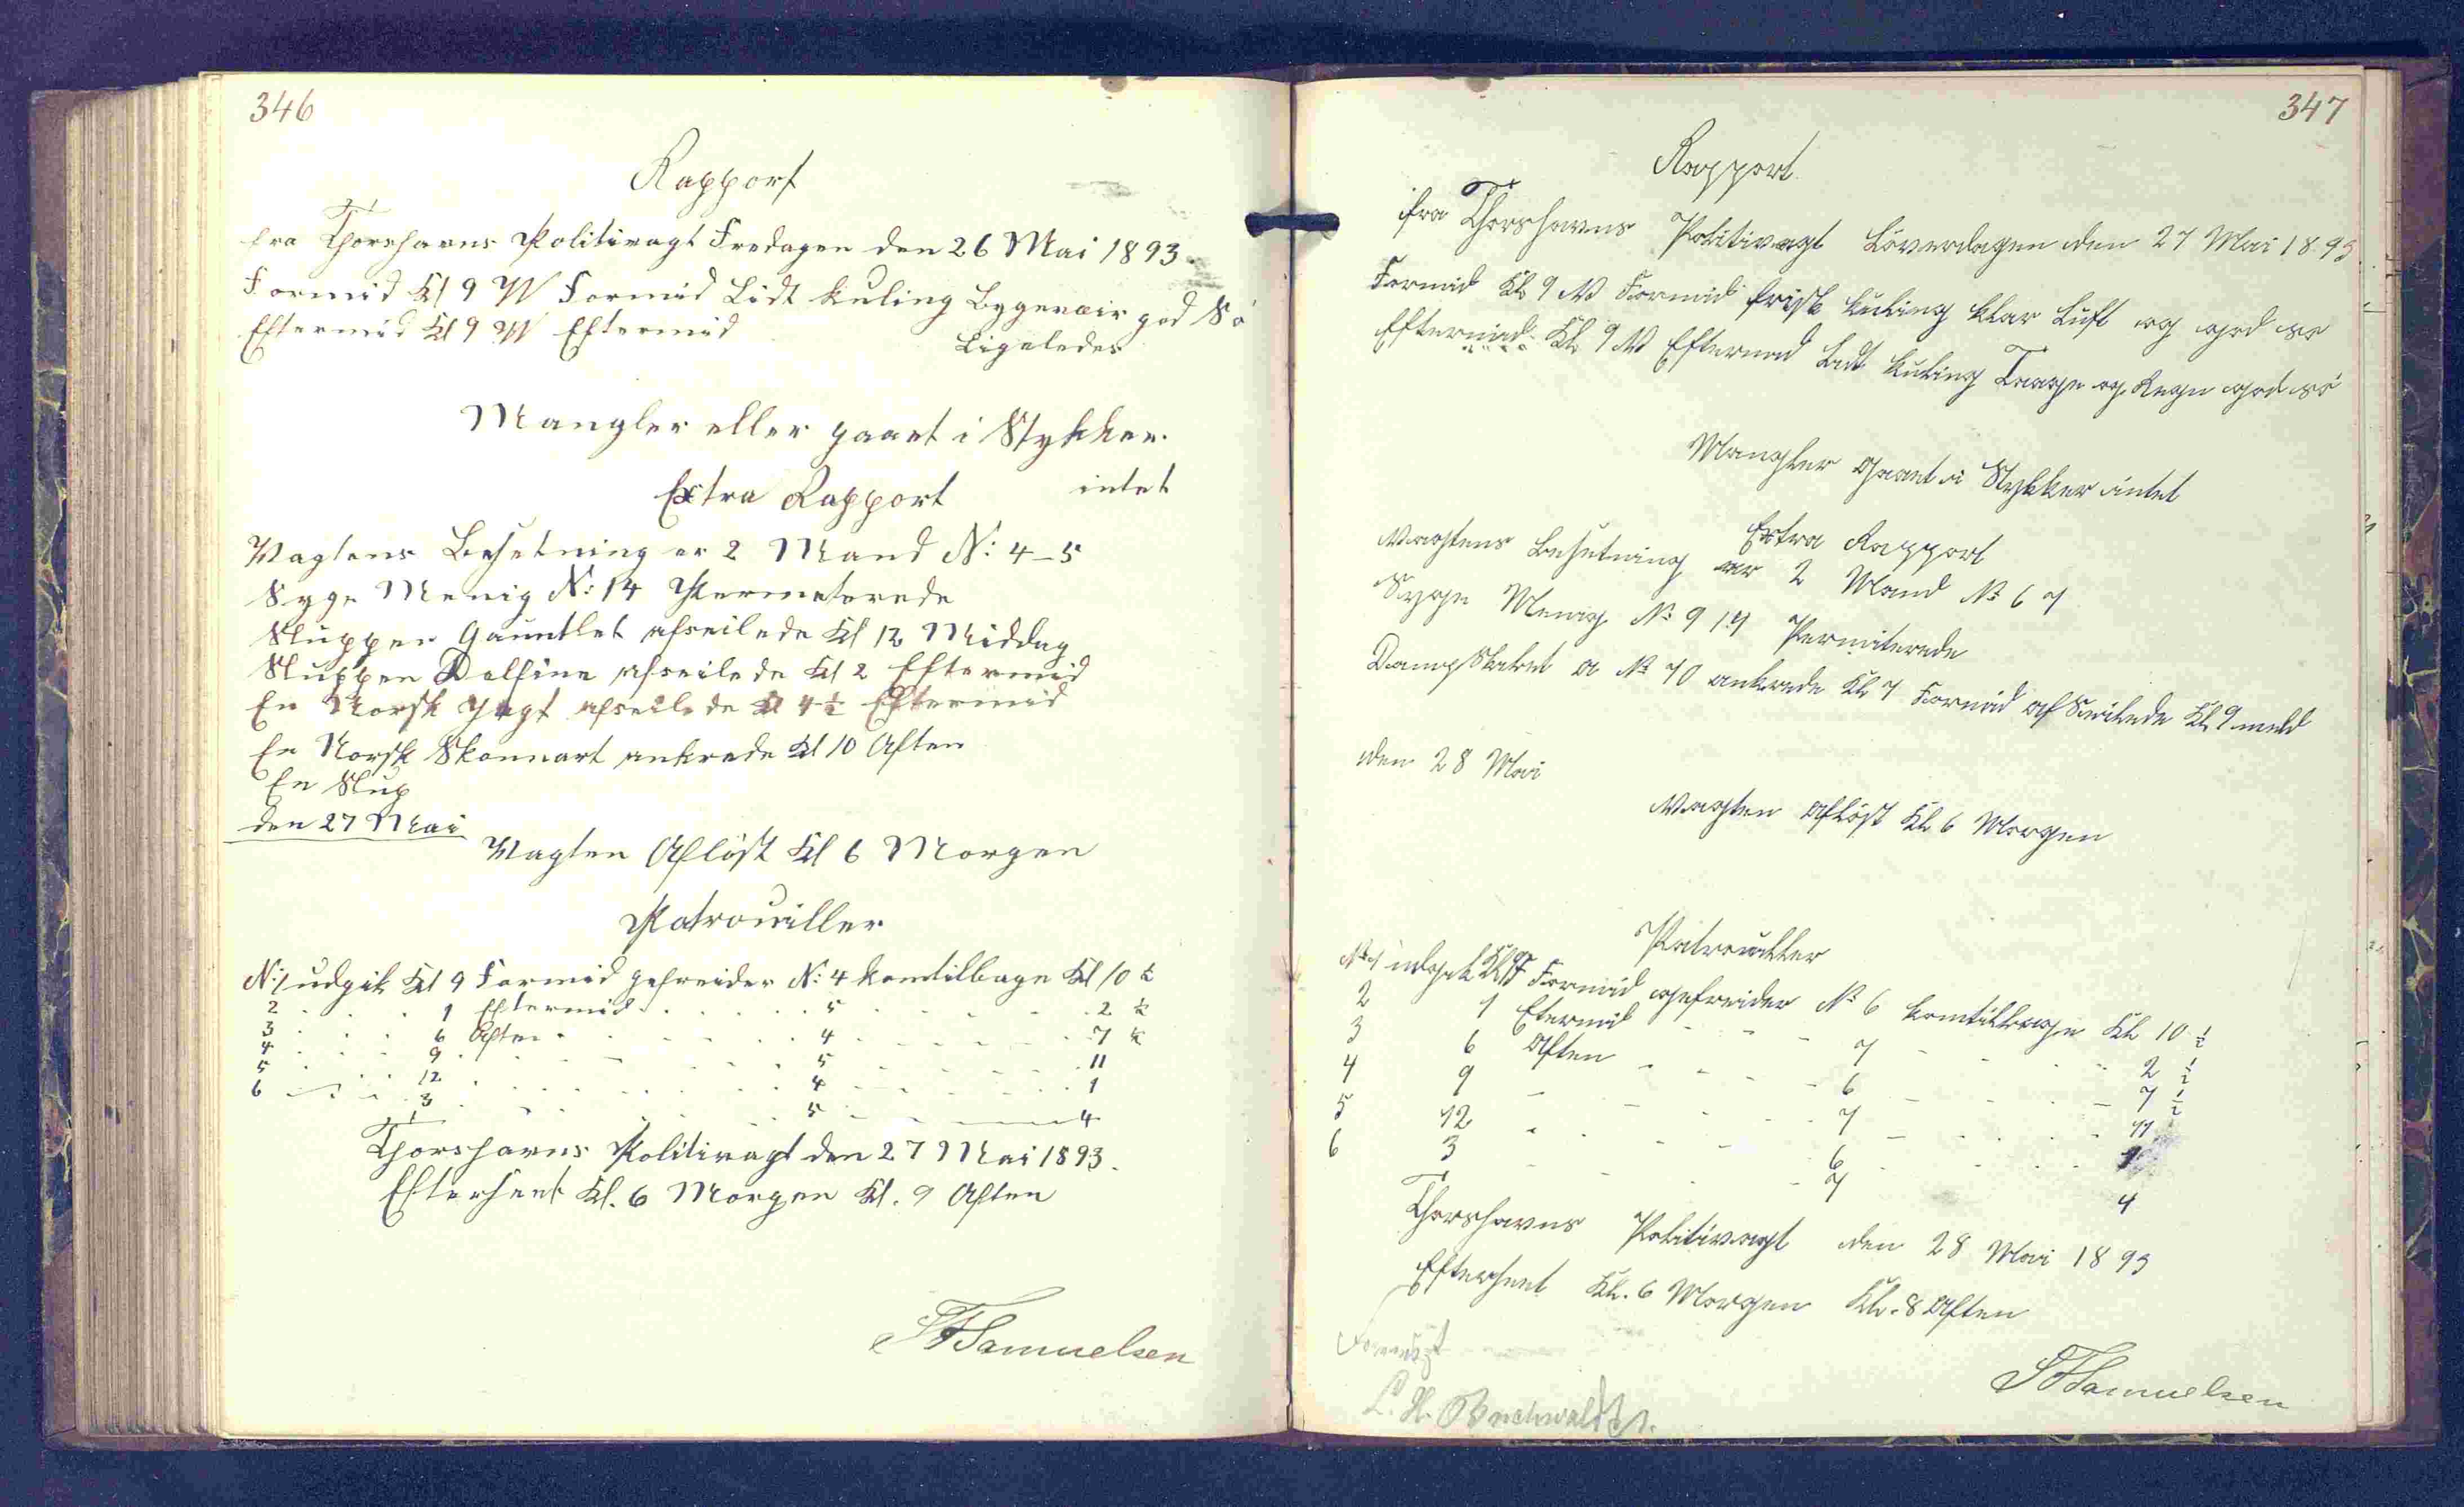 346
Rapport
fra Thorshavns Politivagt Fredagen den 26 Mai 1893.
Formid Kl 9 W Formid Lidt kuling Bygevair god Sö
Eftermid Kl 9 W Eftermid Ligeledes
Mangler eller gaaet i Stykker
intet
Extra Rapport
Vagtens Besetning er 2 Mand N: 4-5
Syge Menig N: 14 Permeterede
Sluppen Gauntlet afseilede Kl 12 Middag
Sluppen Delfine afseilede Kl 2 Eftermid
En Norsk Jagt afseilede Kl 4½ Eftermid
En Norsk Skonnart ankrede Kl 10 Aften
En Slup
den 27 Mai
Vagten Aflöst Kl 6 Morgen
Patrouiller
N: 1 udgik Kl 9 Formid gefreider N: 4 komtilbage Kl 10 ½
2 . . . 1 Eftermid . . . . 5 . . . . 2 ½
3 . . . 6 Aften . . . . 4 . . . . 7 ½
4 . . . 9 . . . . 5 . . . . 11
5 . . . 12 . . . . 4 . . . . 1
6 . . . 3 . . . . 5 . . . . 4
Thorshavns Politivagt den 27 Mai 1893.
Efterseet Kl. 6 Morgen Kl. 9 Aften
SFSamuelsen
347
Rapport
fra Thorshavns Politivagt Löverdagen den 27 Mai 1893
Formid Kl 9 W Formid frisk kuling klar Luft og god so
Eftermid Kl 9 W Eftermid Lidt kuling Taage og Regn god sö
Mangler gaaet i Stykker intet
Extra Rapport
Vagtens Besetning er 2 Mand No 6 7
Syge Menig No 9 14 Permiterede
Dampskibet a No 70 ankrede Kl 7 Formid afseilede Kl 9
den 28 Mai
Vagten aflöst Kl 6 Morgen
Patrouiller
No 1 udgik Kl 9 Formid gefreider No 6 komtilbage Kl 10 ½
2 1 Etermid - - - 7 - - - 2 ½
3 6 Aften - - - 6 - - - 7 ½
4 9 - - - 7 - - - 11
5 12 - - - 6 - - - 1
6 3 - - - 7 4
Thorshavns Politivagt den 28 Mai 1893
Efterseet Kl. 6 Morgen Kl. 8 Aften
SFSamuelsen
L. H. Buchwaldt